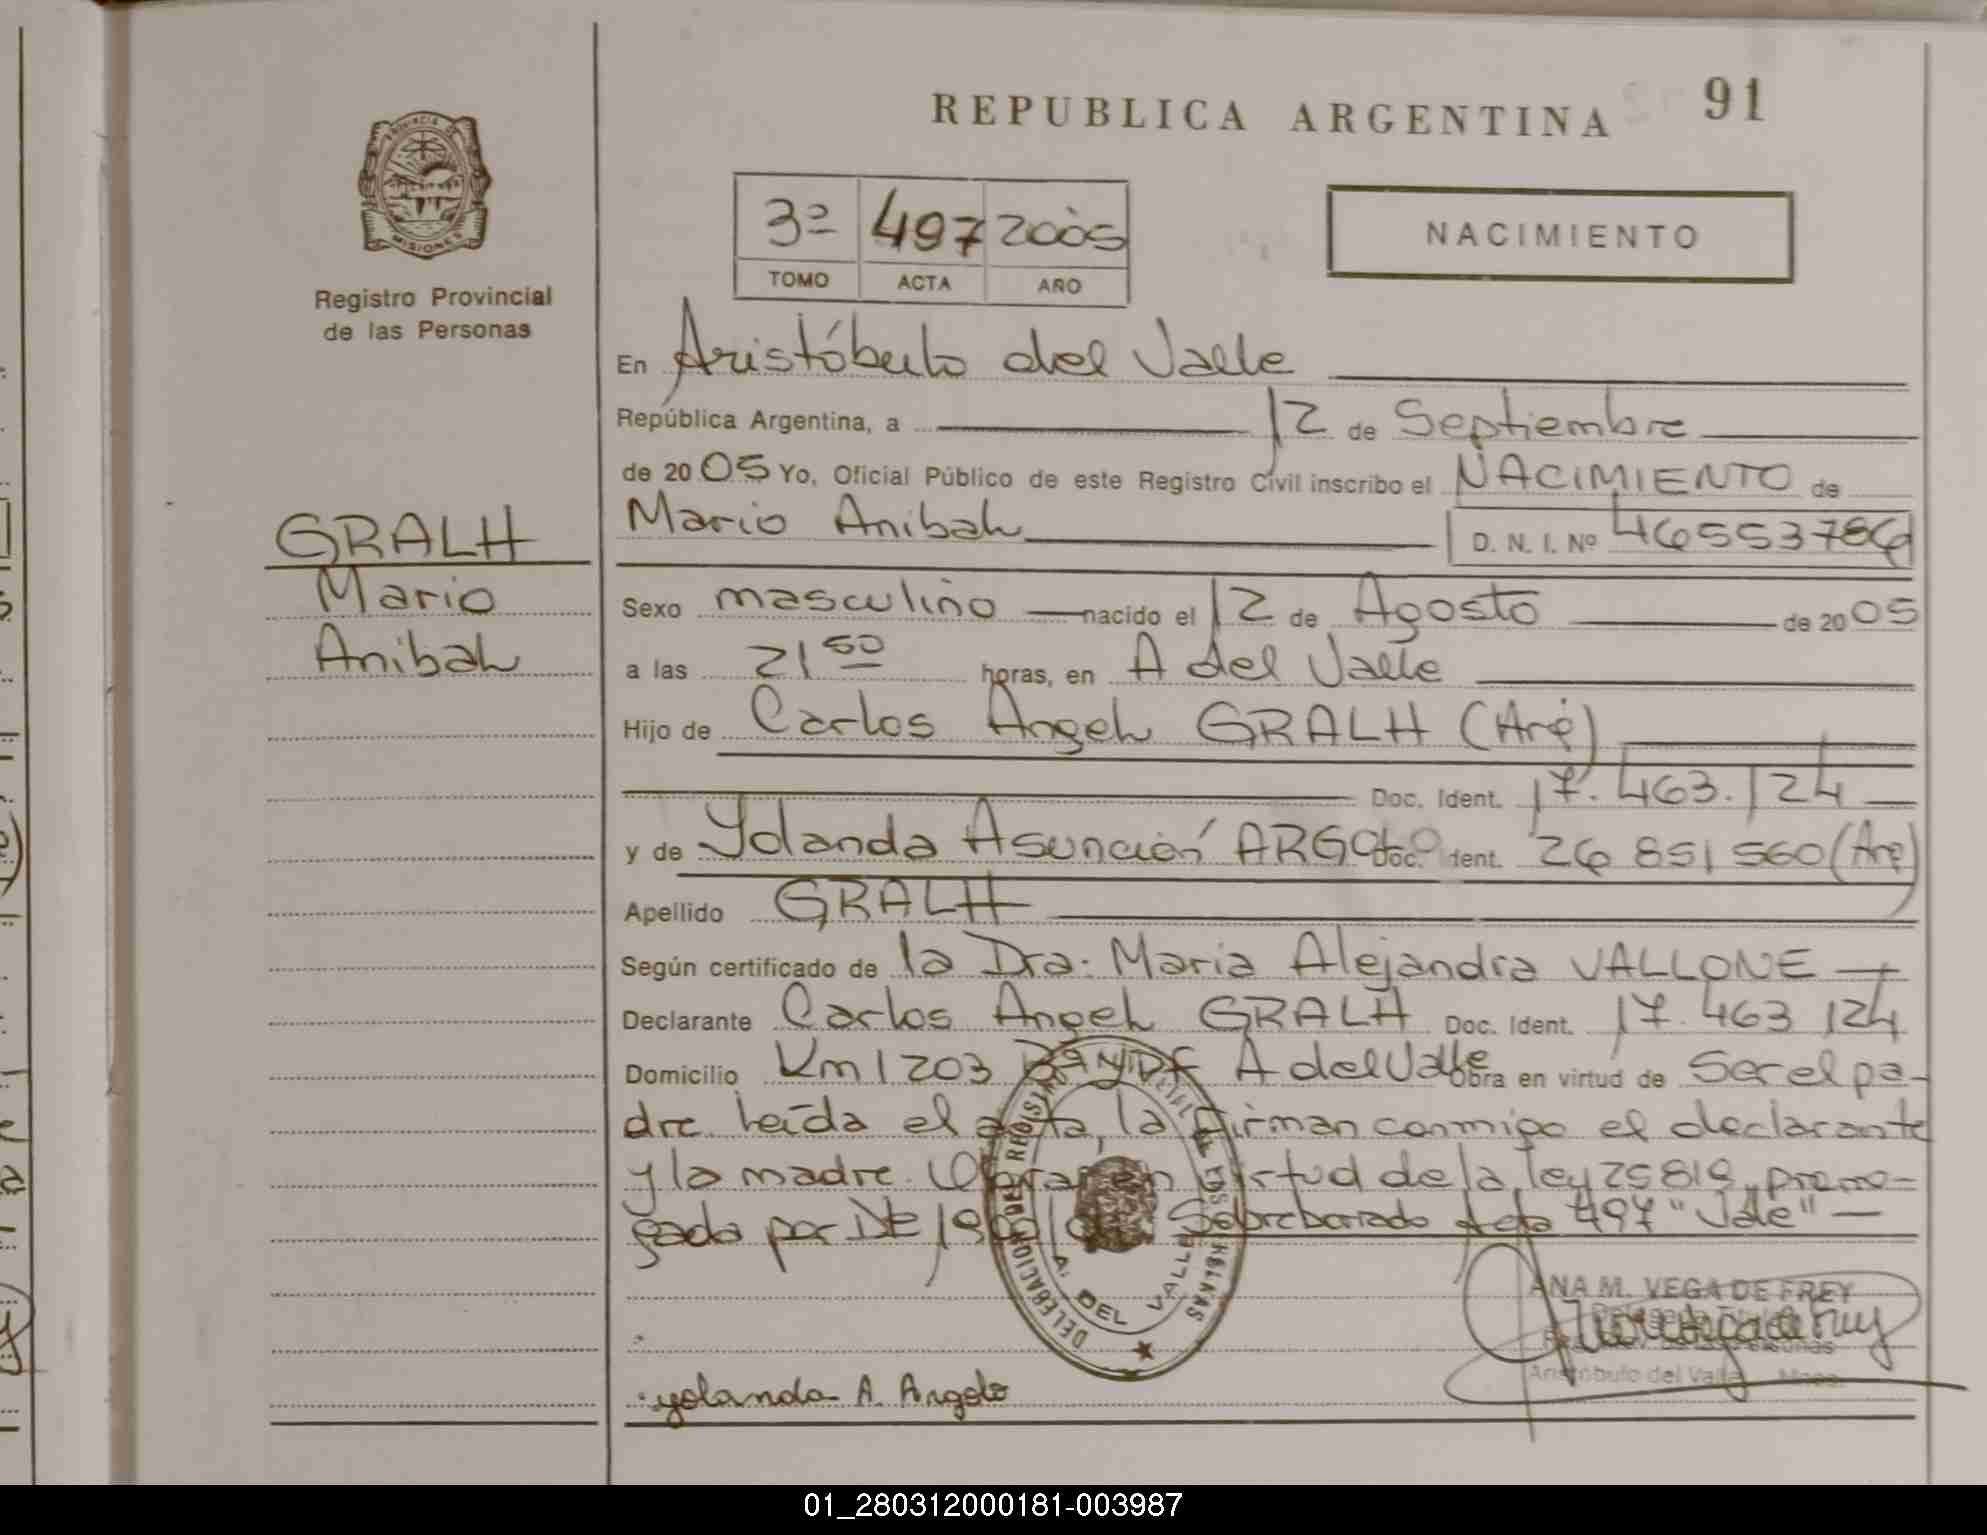 REPUBLICA ARGENTINA 91
PROVINCIA DE
MISIONES
Registro Provincial
de las Personas
3º 497 2005
TOMO ACTA AÑO
NACIMIENTO
En Aristóbulo del Valle
República Argentina, a 12 de Septiembre
de 2005 Yo, Oficial Público de este Registro Civil inscribo el NACIMIENTO de
Mario Anibal D. N. I. Nº 46553786
GRALH
Mario
Anibal
Sexo masculino nacido el 12 de Agosto de 2005
a las 21 50 horas, en A del Valle
Hijo de Carlos Angel GRALH (Arg)
Doc. Ident. 17.463.124
y de Yolanda Asunción ARGOTO Doc. Ident. 26 851 560 (Arg)
Apellido GRALH
Según certificado de la Dra. Maria Alejandra VALLONE
Declarante Carlos Angel GRALH Doc. Ident. 17.463 124
Domicilio Km 1203 A del Valle Obra en virtud de Ser el pa-
dre. Leída el acta, la firman conmigo el declarante
y la madre. Obrar en virtud de la ley 25819, prorro-
gada por Sobreborrado Acta 497 "Vale" —
DELEGACION DEL REGISTRO
A. DEL VALLE
ANA M. VEGA DE FREY
Aristóbulo del Valle
Yolanda A. Argoto
01_280312000181-003987